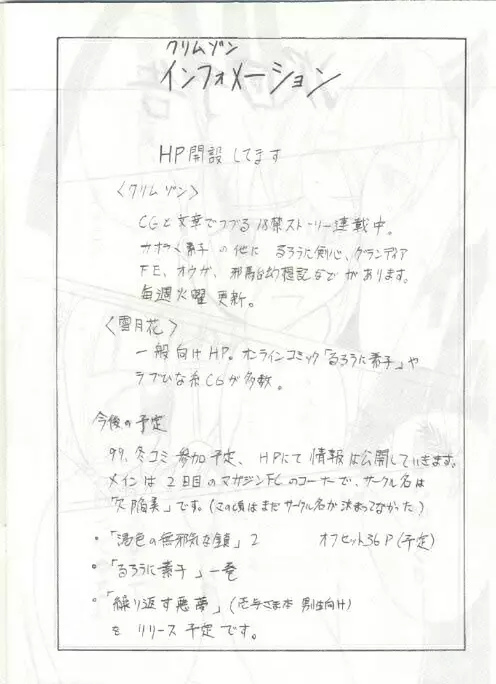 クリムゾン
インフォメーション
HP開設してます
〈クリムゾン〉
CGと文章でつづる18禁ストーリー連載中。
素子の他に るろうに剣心、グランディア
FE、オウガ、邪馬台幻想記などがあります。
毎週火曜更新。
〈雪月花〉
一般向けHP。オンラインコミック「るろうに素子」や
ラブひな系CGが多数。
今後の予定
99,冬コミ参加予定、HPにて情報は公開していきます。
メインは2日目のマガジンFCのコーナーで、サークル名は
「欠陥美」です。(この頃はまだサークル名が決まってなかった)
・「湯色の無邪気な鎖」2 オフセット36P(予定)
・「るろうに素子」一巻
・「繰り返す悪夢」(壱与さま本 男性向け)
をリリース予定です。